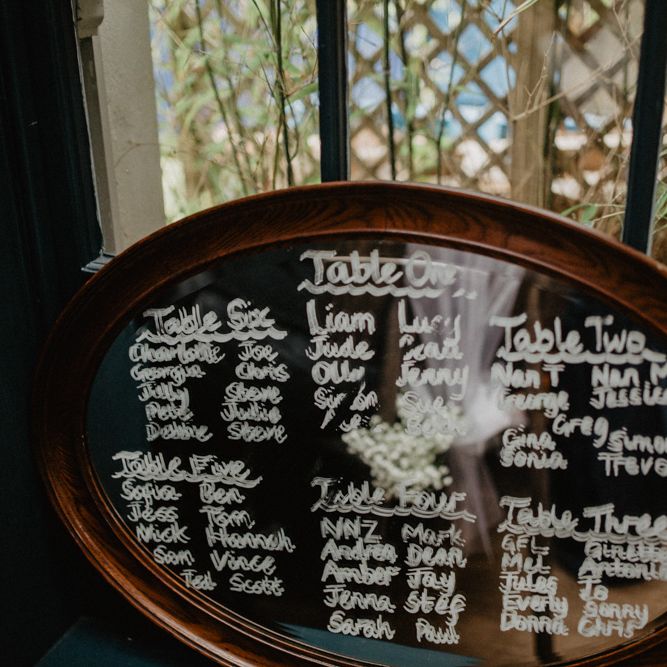 Table One
Liam Lucy
Jude
Olly Jenny
Simon Sue
Table Six
Charlotte Joe
Georgia Chris
Jilly Steve
Pete Jullie
Debbie Steve
Table Two
Nan T Nan M
George Jessica
Greg
Gina Simon
Sonia
Table Five
Sofia Ben
Jess Tom
Nick Hannah
Sam Vince
Ted Scott
Table Four
NNZ Mark
Andrea Dean
Amber Jay
Jenna Steg
Sarah Paul
Table Three
GFL Ginette
Mel Antonio
Jules Jo
Everly Sonny
Donna Chris